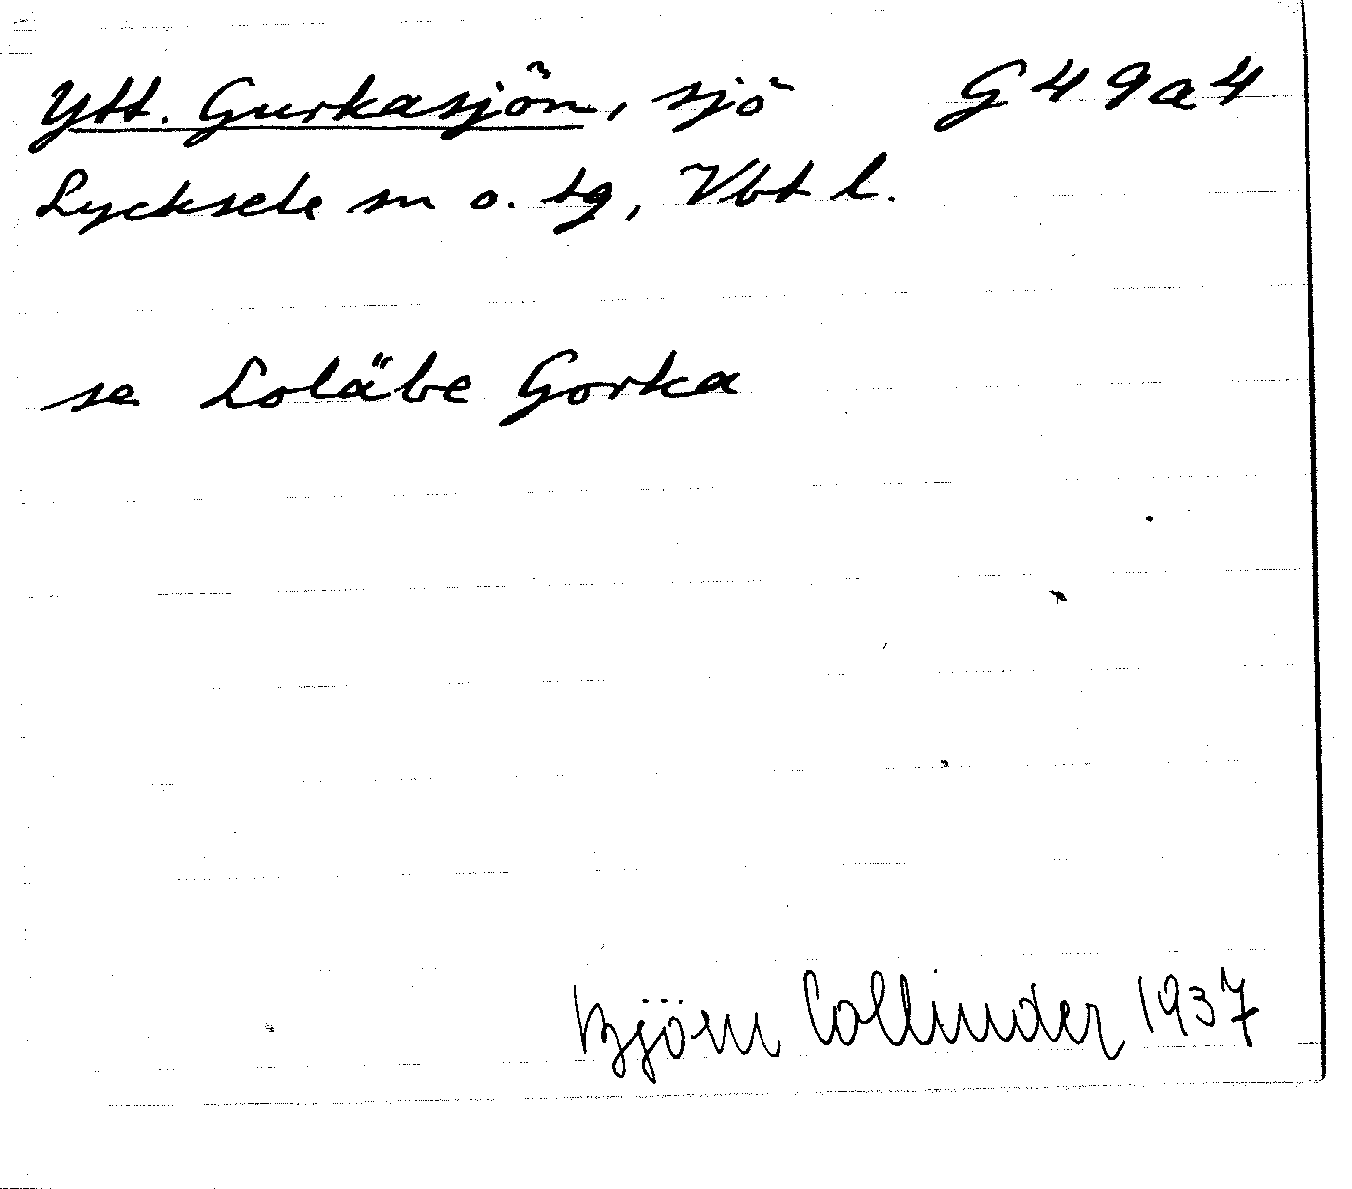 Ytt. Gurkasjön, sjö G49a4
Lycksele sn o. tg, Vbt l.
se Loläbe Gorka
Björn Collinder 1937